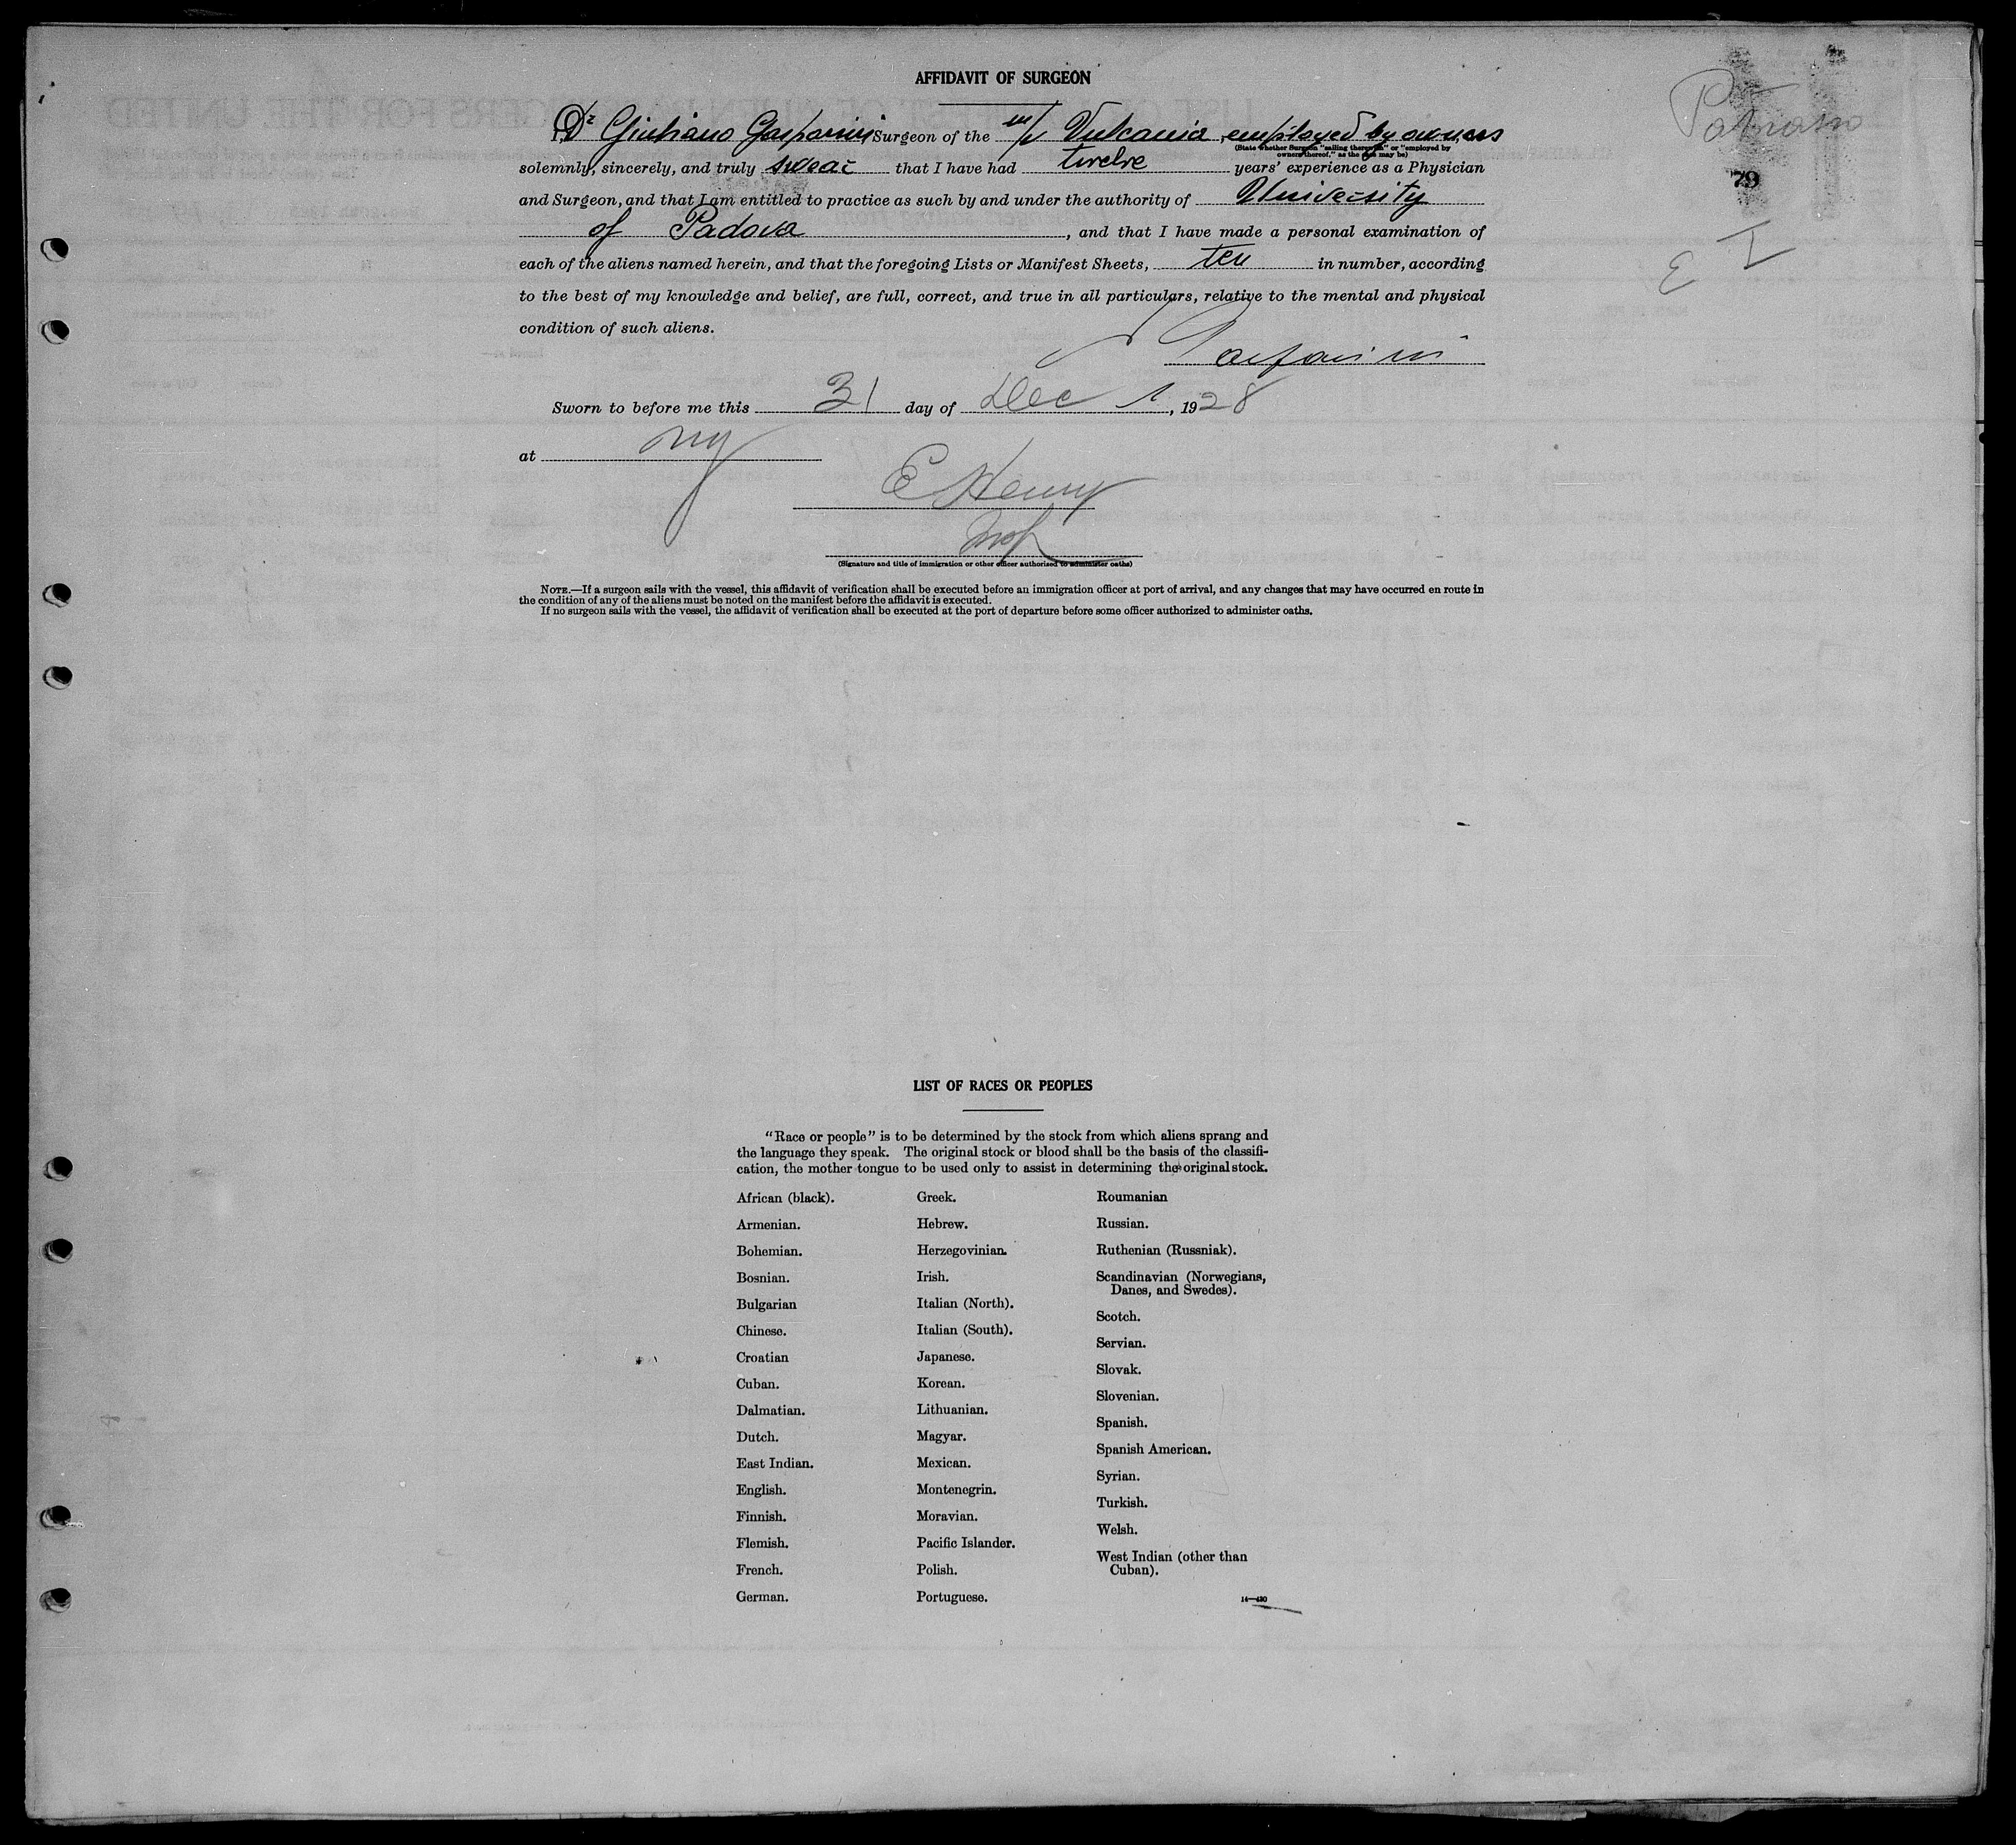 AFFIDAVIT OF SURGEON
I, Dr Giuliano Gasparini, Surgeon of the m/v Vulcania, employed by owners
(State whether Surgeon "sailing therewith" or "employed by
owners thereof," as the case may be)
solemnly, sincerely, and truly swear that I have had twelve years' experience as a Physician
and Surgeon, and that I am entitled to practice as such by and under the authority of University
of Padova, and that I have made a personal examination of
each of the aliens named herein, and that the foregoing Lists or Manifest Sheets, ten in number, according
to the best of my knowledge and belief, are full, correct, and true in all particulars, relative to the mental and physical
condition of such aliens.
Gasparini
Sworn to before me this 31 day of Dec, 1928
at NY
E Henry
(Signature and title of immigration or other officer authorized to administer oaths)
NOTE.—If a surgeon sails with the vessel, this affidavit of verification shall be executed before an immigration officer at port of arrival, and any changes that may have occurred en route in
the condition of any of the aliens must be noted on the manifest before the affidavit is executed.
If no surgeon sails with the vessel, the affidavit of verification shall be executed at the port of departure before some officer authorized to administer oaths.
Patrasso
79
I
E
LIST OF RACES OR PEOPLES
"Race or people" is to be determined by the stock from which aliens sprang and
the language they speak. The original stock or blood shall be the basis of the classifi-
cation, the mother tongue to be used only to assist in determining the original stock.
African (black).
Armenian.
Bohemian.
Bosnian.
Bulgarian
Chinese.
Croatian
Cuban.
Dalmatian.
Dutch.
East Indian.
English.
Finnish.
Flemish.
French.
German.
Greek.
Hebrew.
Herzegovinian.
Irish.
Italian (North).
Italian (South).
Japanese.
Korean.
Lithuanian.
Magyar.
Mexican.
Montenegrin.
Moravian.
Pacific Islander.
Polish.
Portuguese.
Roumanian
Russian.
Ruthenian (Russniak).
Scandinavian (Norwegians,
Danes, and Swedes).
Scotch.
Servian.
Slovak.
Slovenian.
Spanish.
Spanish American.
Syrian.
Turkish.
Welsh.
West Indian (other than
Cuban).
14—430